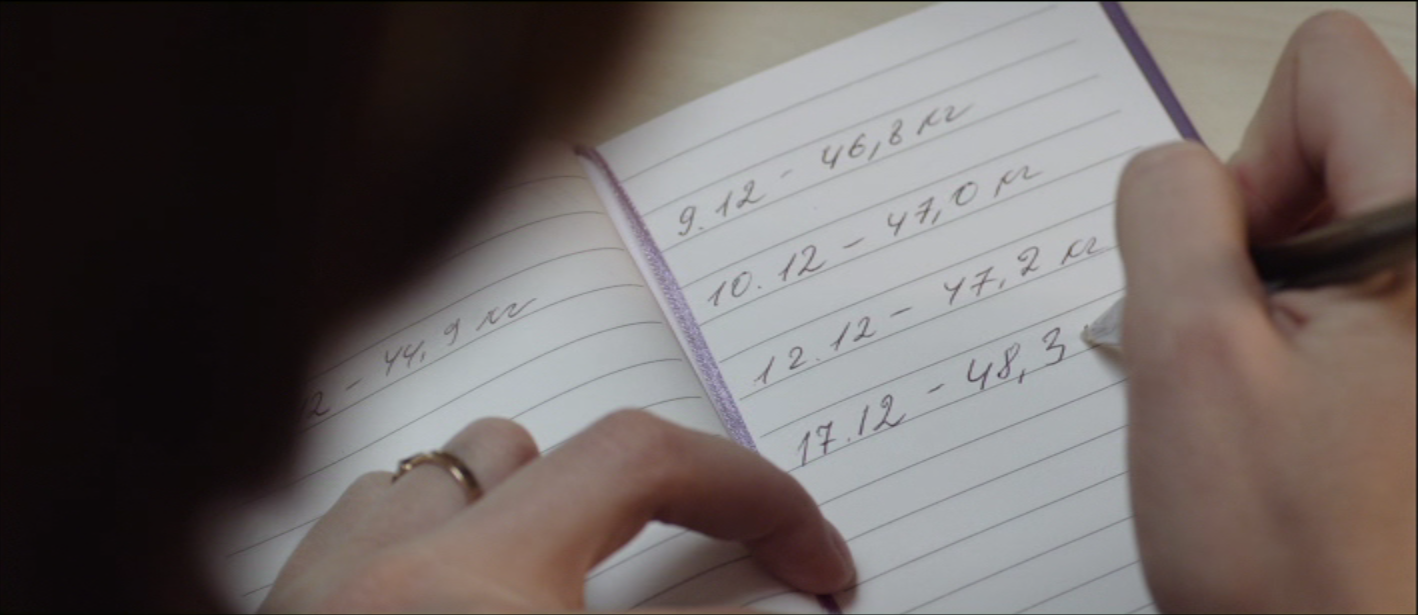 2 - 44,9 кг
9.12 - 46,8 кг
10.12 - 47,0 кг
12.12 - 47,2 кг
17.12 - 48,3